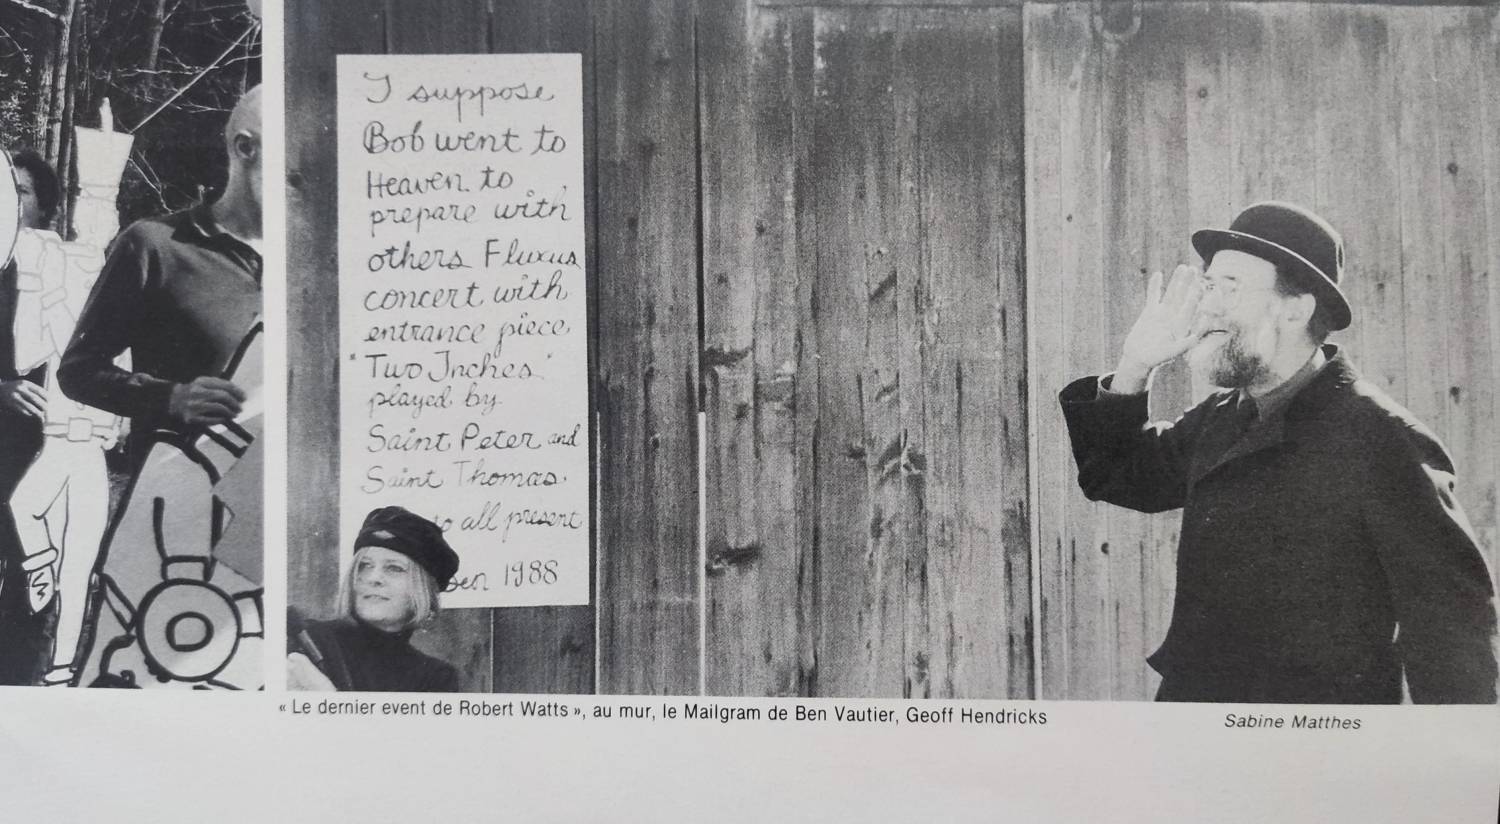 I suppose
Bob went to
Heaven to
prepare with
others Fluxus
concert with
entrance piece
"Two Inches"
played by
Saint Peter and
Saint Thomas.
to all present
Ben 1988
« Le dernier event de Robert Watts », au mur, le Mailgram de Ben Vautier, Geoff Hendricks
Sabine Matthes